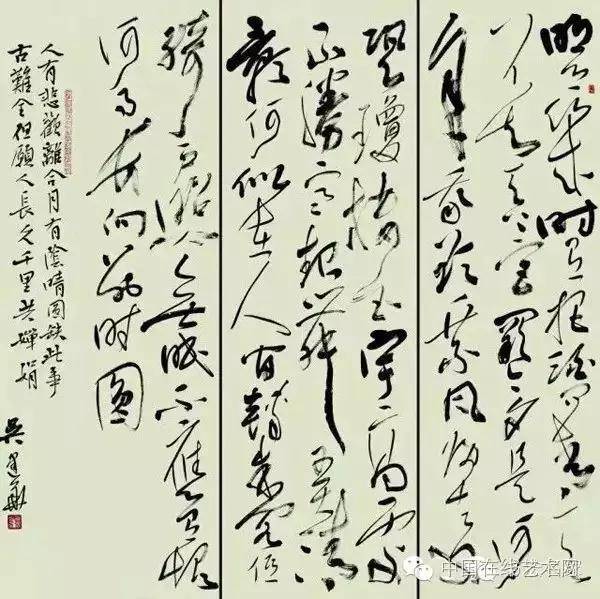 明月幾時有把酒問青天
不知天上宫闕今夕是何
年我欲乘風歸去又
恐瓊樓玉宇高處
不勝寒起舞弄清
影何似在人间轉朱阁低
綺户照無眠不應有恨
何事長向别時圆
人有悲歡離合月有陰晴圓缺此事
古難全但願人長久千里共嬋娟
中国在线艺术网